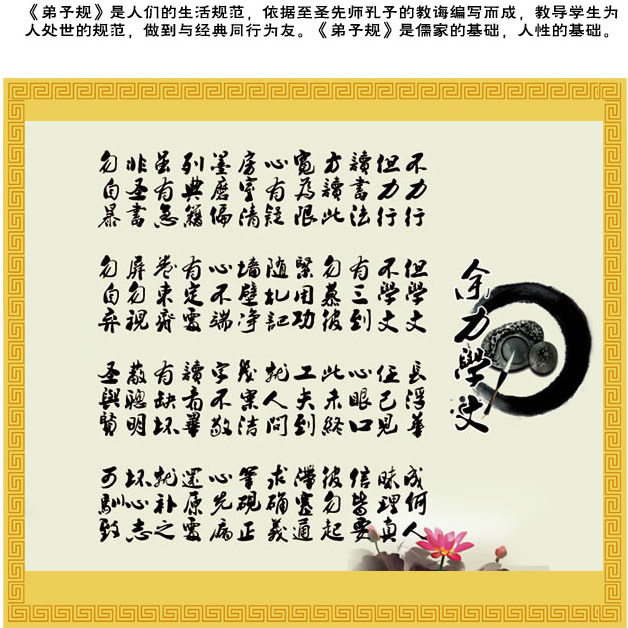 《弟子规》是人们的生活规范，依据至圣先师孔子的教诲编写而成，教导学生为
人处世的规范，做到与经典同行为友。《弟子规》是儒家的基础，人性的基础。
余力學文
不力行 但學文 長浮華 成何人
但力行 不學文 任己見 昧理真
讀書法 有三到 心眼口 信皆要
方讀此 勿慕彼 此未終 彼勿起
寬為限 緊用功 工夫到 滯塞通
心有疑 随札記 就人問 求确義
房室清 墙壁净 幾案洁 筆硯正
墨磨偏 心不端 字不敬 心先病
列典籍 有定處 讀看畢 還原處
虽有急 卷束齊 有缺坏 就补之
非圣書 屏勿視 蔽聰明 坏心志
勿自暴 勿自弃 圣與賢 可馴致